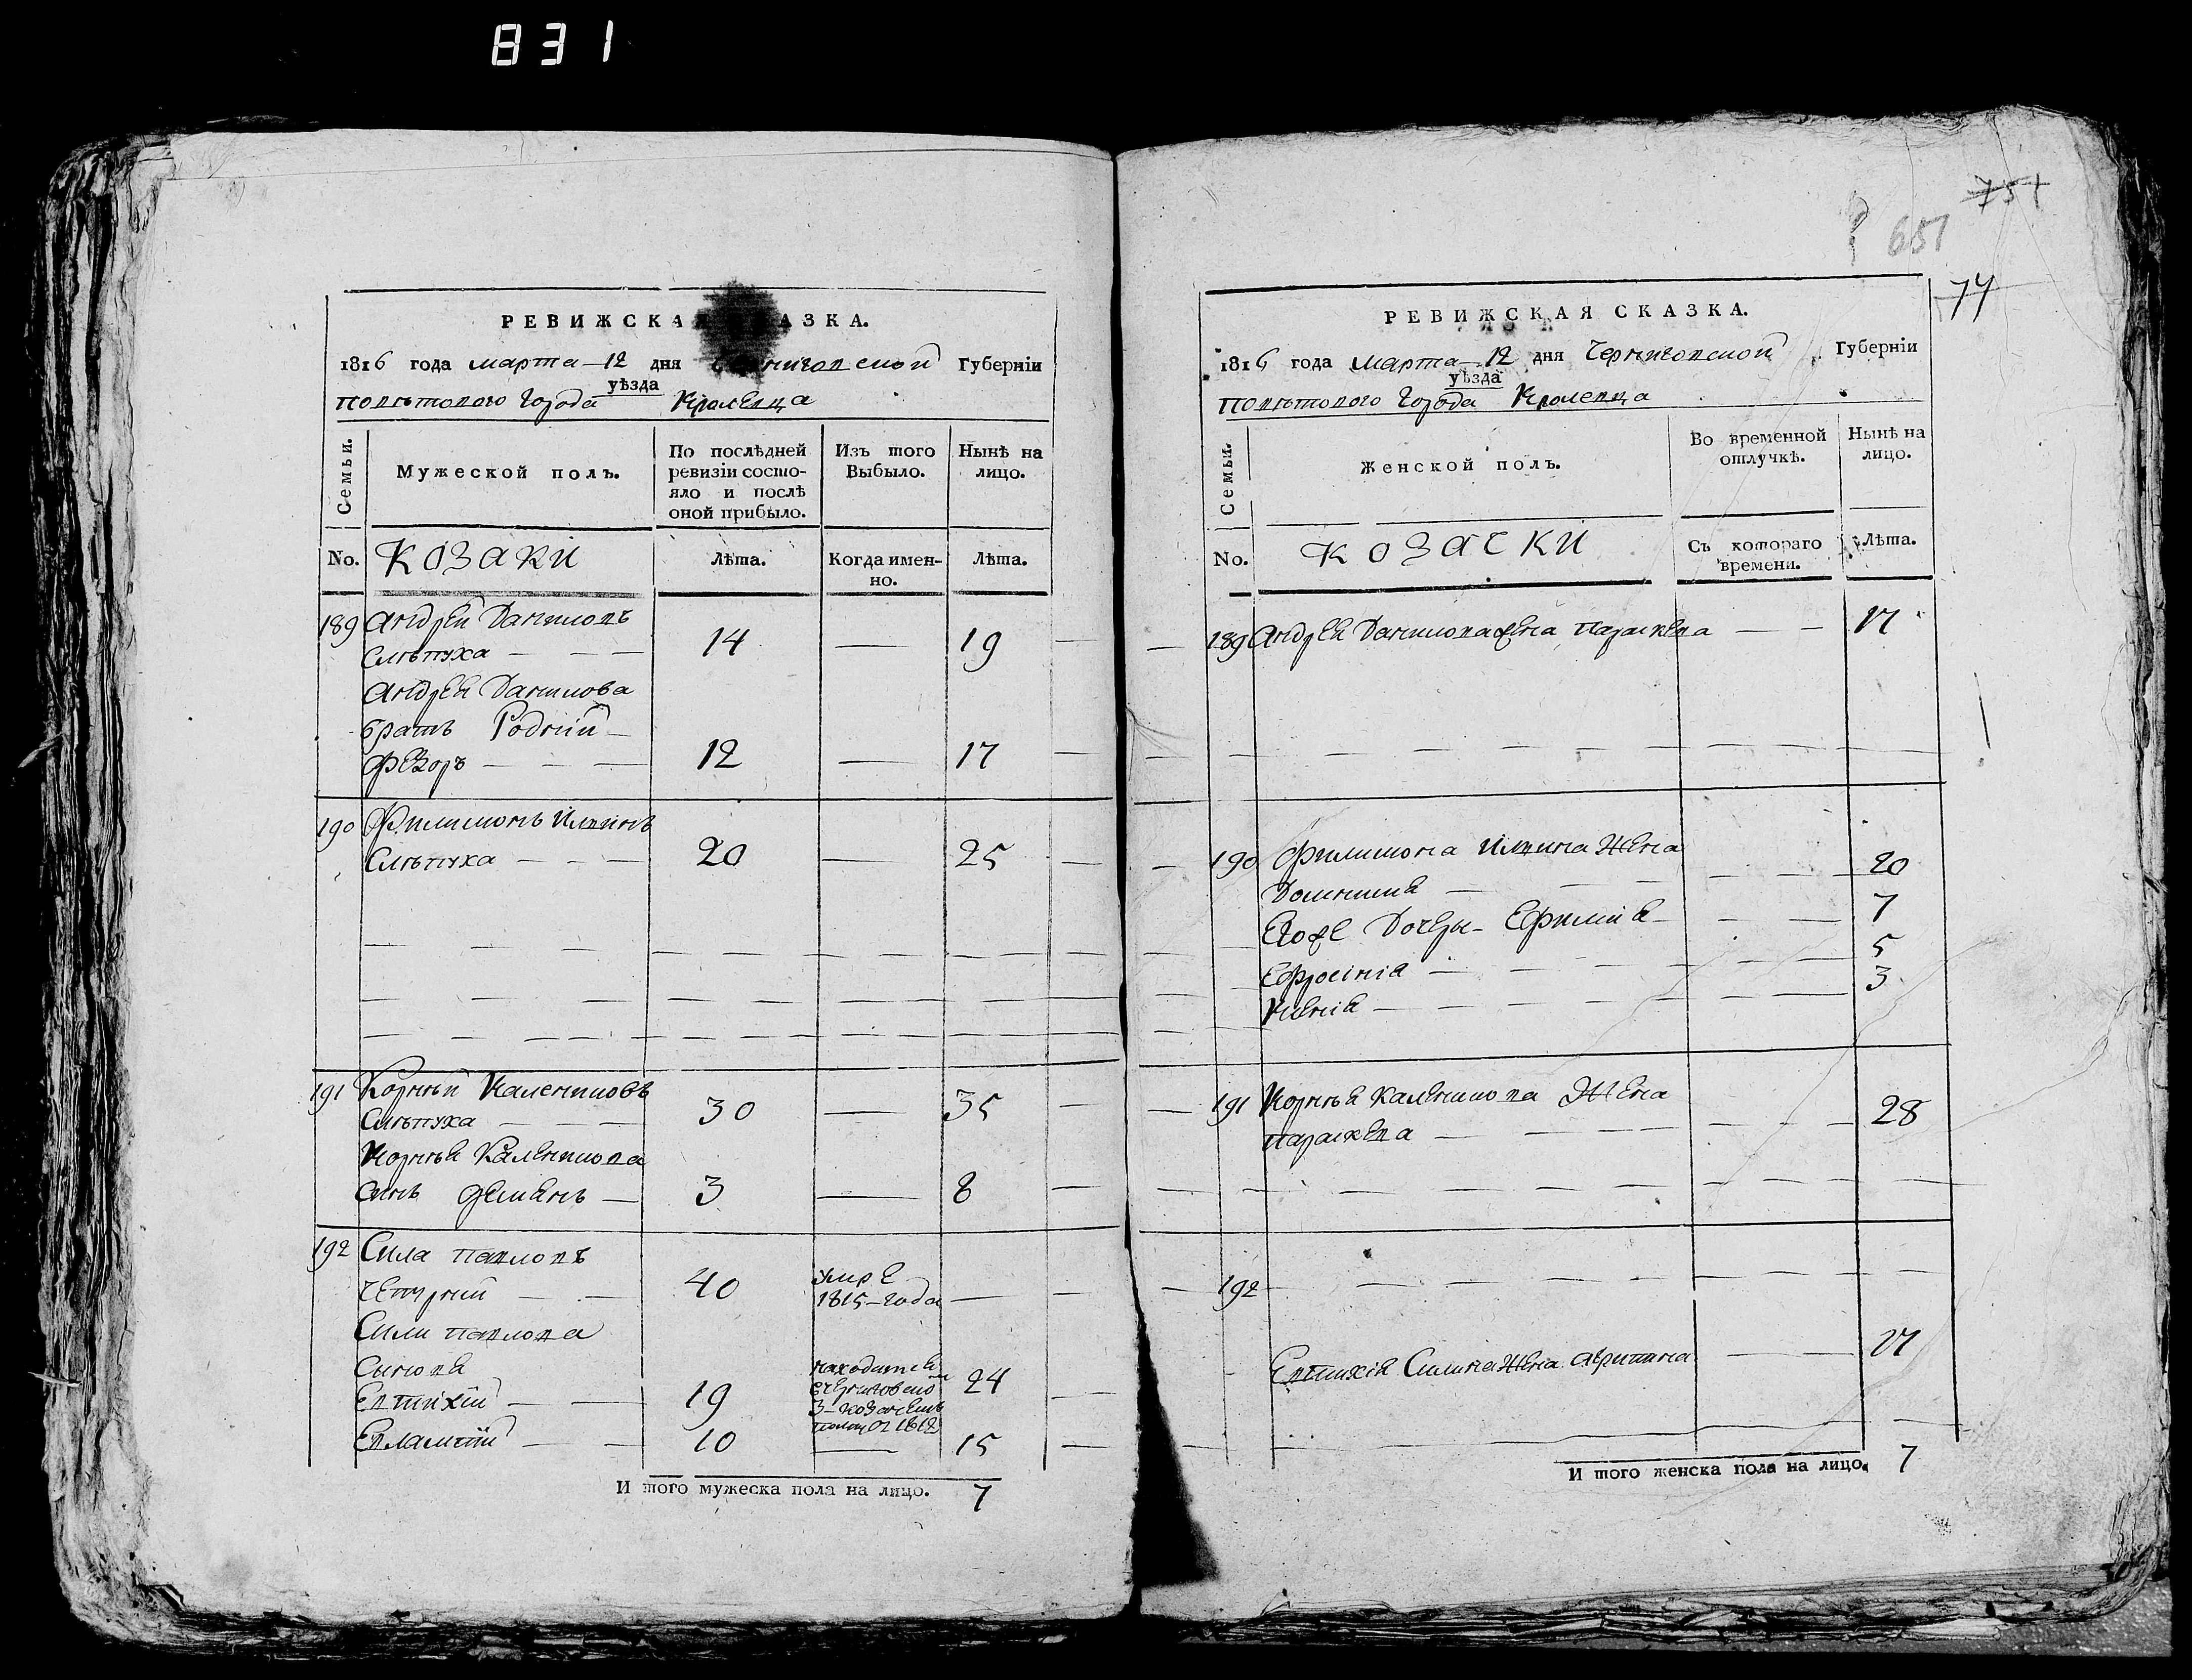 831
751
651
77
РЕВИЖСКАЯ СКАЗКА.
1816 года марта 12 дня Черниговской Губерніи
уѣзда
Повѣтового города Кролевца
Семьи.
Мужеской полъ.
По послѣдней ревизіи состояло и послѣ оной прибыло.
Изъ того Выбыло.
Нынѣ на лицо.
No. Козаки Лѣта. Когда именно. Лѣта.
189 Андрей Даниловъ
Слѣпуха — — — 14 — 19
Андрея Данилова
братъ Родній —
Федоръ — — — 12 — 17
190 Филимонъ Илинъ
Слѣпуха — — — 20 — 25
191 Корнѣй Калениковъ
Слѣпуха — — — 30 — 35
Корнѣя Каленикова
синъ Демянъ — 3 — 8
192 Сила Павловъ
Чепурний — — 40 умре
1815-года —
Сили Павлова
Синовя
Евтихій — — 19 находится
в Черниговско
3-козачемъ
полку 24
Евлампій — — 10 — 15
И того мужеска пола на лицо. 7
РЕВИЖСКАЯ СКАЗКА.
1816 года Марта 12 дня Черниговской Губерніи
уѣзда
Повѣтового Города Кролевца
Семьи.
Женской полъ.
Во временной отлучкѣ.
Нынѣ на лицо.
No. козачки Съ котораго времени. Лѣта.
189 Андрея Данилова жена Параскева — — 17
190 Филимона Илина Жена
Домникия — 20
Егоже Дочеры — Ефимія — 7
Ефросінія — 5
Ксенія — 3
191 Корнѣя Каленикова Жена
Параскева — 28
192
Евтихія Силина Жена Агрипина — — 17
И того женска пола на лицо. 7